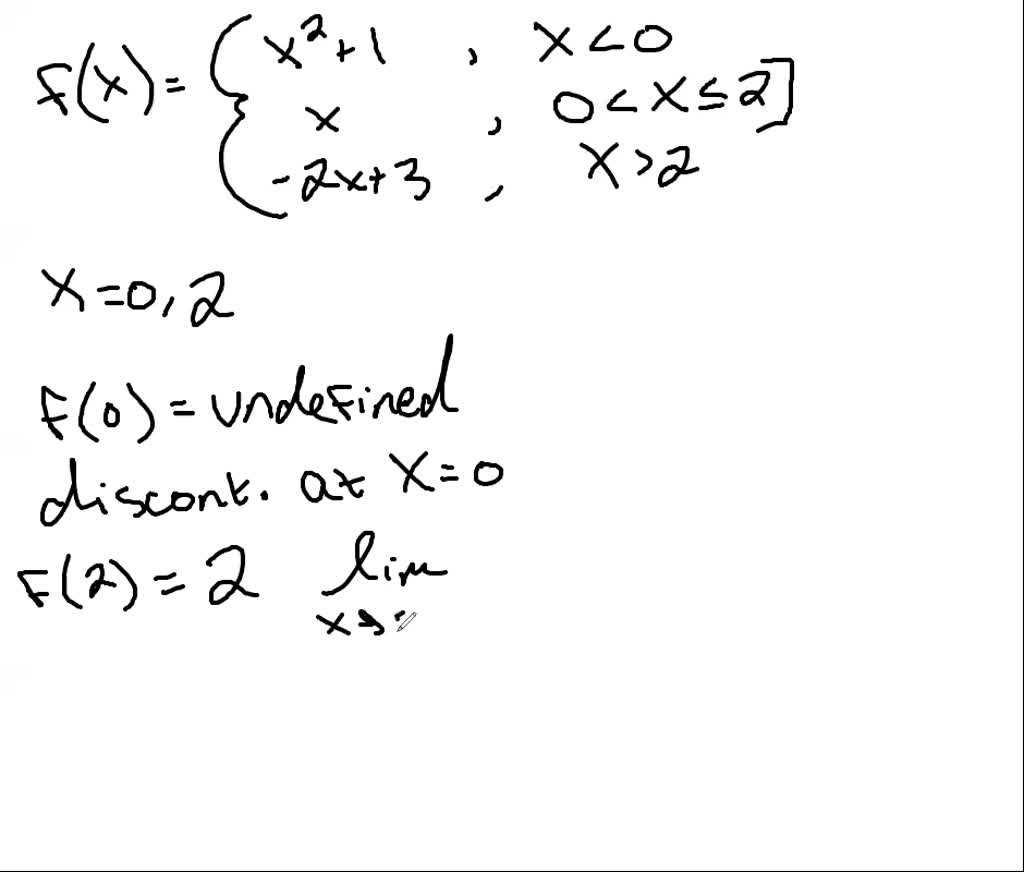 F(x) = { x²+1 , x<0
x , 0<x≤2]
-2x+3 , x>2
x=0,2
F(0) = undefined
discont. at x=0
F(2) = 2 lim
x→